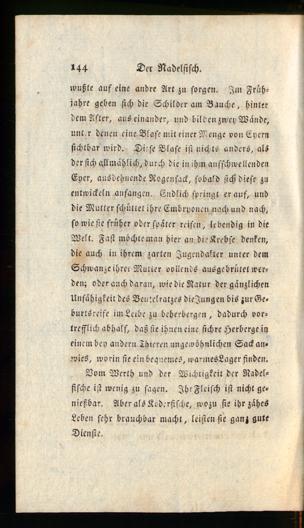 144 Der Nadelfisch.
wußte auf eine andre Art zu sorgen. Im Früh-
jahre geben sich die Schilder am Bauche, hinter
dem After, aus einander, und bilden zwey Wände,
unter denen eine Blase mit einer Menge von Eyern
sichtbar wird. Diese Blase ist nichts anders, als
der sich allmählich, durch die in ihm aufschwellenden
Eyer, ausdehnende Rogensack, sobald sich diese zu
entwickeln anfangen. Endlich springt er auf, und
die Mutter schüttet ihre Embryonen nach und nach,
so wie sie früher oder später reifen, lebendig in die
Welt. Fast möchte man hier an die Krebse denken,
die auch in ihrem zarten Jugendalter unter dem
Schwanze ihrer Mutter vollends ausgebrütet wer-
den; oder auch daran, wie die Natur der gänzlichen
Unfähigkeit des Beutelratzes die Jungen bis zur Ge-
burtsreife im Leibe zu beherbergen, dadurch vor-
trefflich abhalf, daß sie ihnen eine sichre Herberge in
einem bey andern Thieren ungewöhnlichen Sack an-
wies, worin sie ein bequemes, warmes Lager finden.
Vom Werth und der Wichtigkeit der Nadel-
fische ist wenig zu sagen. Ihr Fleisch ist nicht ge-
nießbar. Aber als Köderfische, wozu sie ihr zähes
Leben sehr brauchbar macht, leisten sie ganz gute
Dienste.